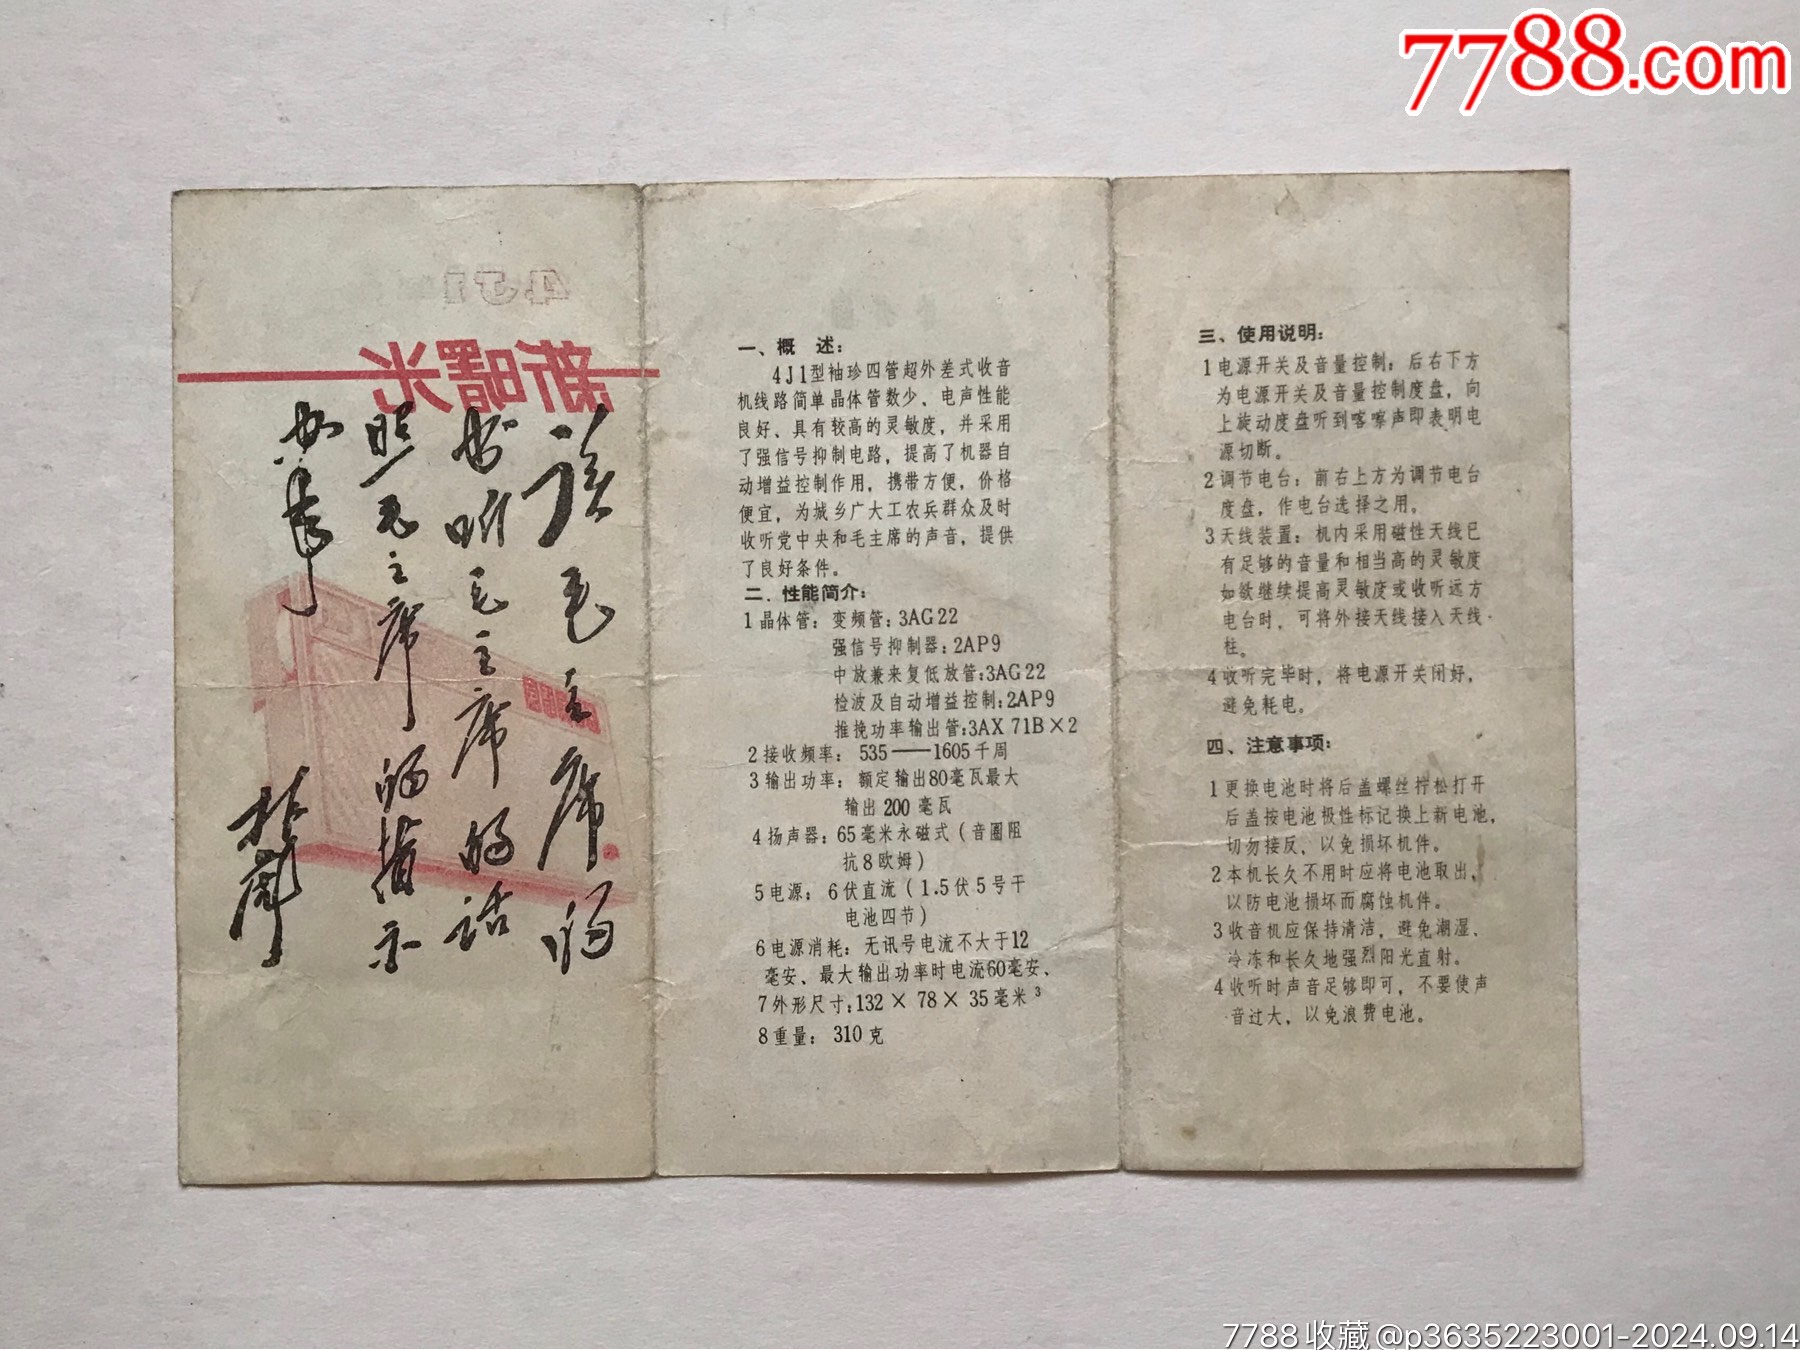 7788.com
读毛主席的
书听毛主席的话
照毛主席的指示
办事
林彪
一、概 述：
4J1型袖珍四管超外差式收音
机线路简单晶体管数少、电声性能
良好、具有较高的灵敏度，并采用
了强信号抑制电路，提高了机器自
动增益控制作用，携带方便，价格
便宜，为城乡广大工农兵群众及时
收听党中央和毛主席的声音，提供
了良好条件。
二．性能简介：
1晶体管：变频管：3AG22
强信号抑制器：2AP9
中放兼来复低放管：3AG22
检波及自动增益控制：2AP9
推挽功率输出管：3AX 71B×2
2接收频率： 535——1605千周
3输出功率：额定输出80毫瓦最大
输出 200 毫瓦
4扬声器：65毫米永磁式（音圈阻
抗8欧姆）
5电源：6伏直流（1.5伏5号干
电池四节）
6电源消耗：无讯号电流不大于12
毫安、最大输出功率时电流60毫安、
7外形尺寸：132 × 78 × 35毫米³
8重量： 310克
三、使用说明：
1电源开关及音量控制：后右下方
为电源开关及音量控制度盘，向
上旋动度盘听到喀嚓声即表明电
源切断。
2调节电台：前右上方为调节电台
度盘，作电台选择之用。
3天线装置：机内采用磁性天线已
有足够的音量和相当高的灵敏度
如欲继续提高灵敏度或收听远方
电台时，可将外接天线接入天线
柱。
4收听完毕时，将电源开关闭好，
避免耗电。
四、注意事项：
1更换电池时将后盖螺丝拧松打开
后盖按电池极性标记换上新电池，
切勿接反，以免损坏机件。
2本机长久不用时应将电池取出，
以防电池损坏而腐蚀机件。
3收音机应保持清洁，避免潮湿、
冷冻和长久地强烈阳光直射。
4收听时声音足够即可，不要使声
音过大，以免浪费电池。
7788收藏@p3635223001-2024.09.14